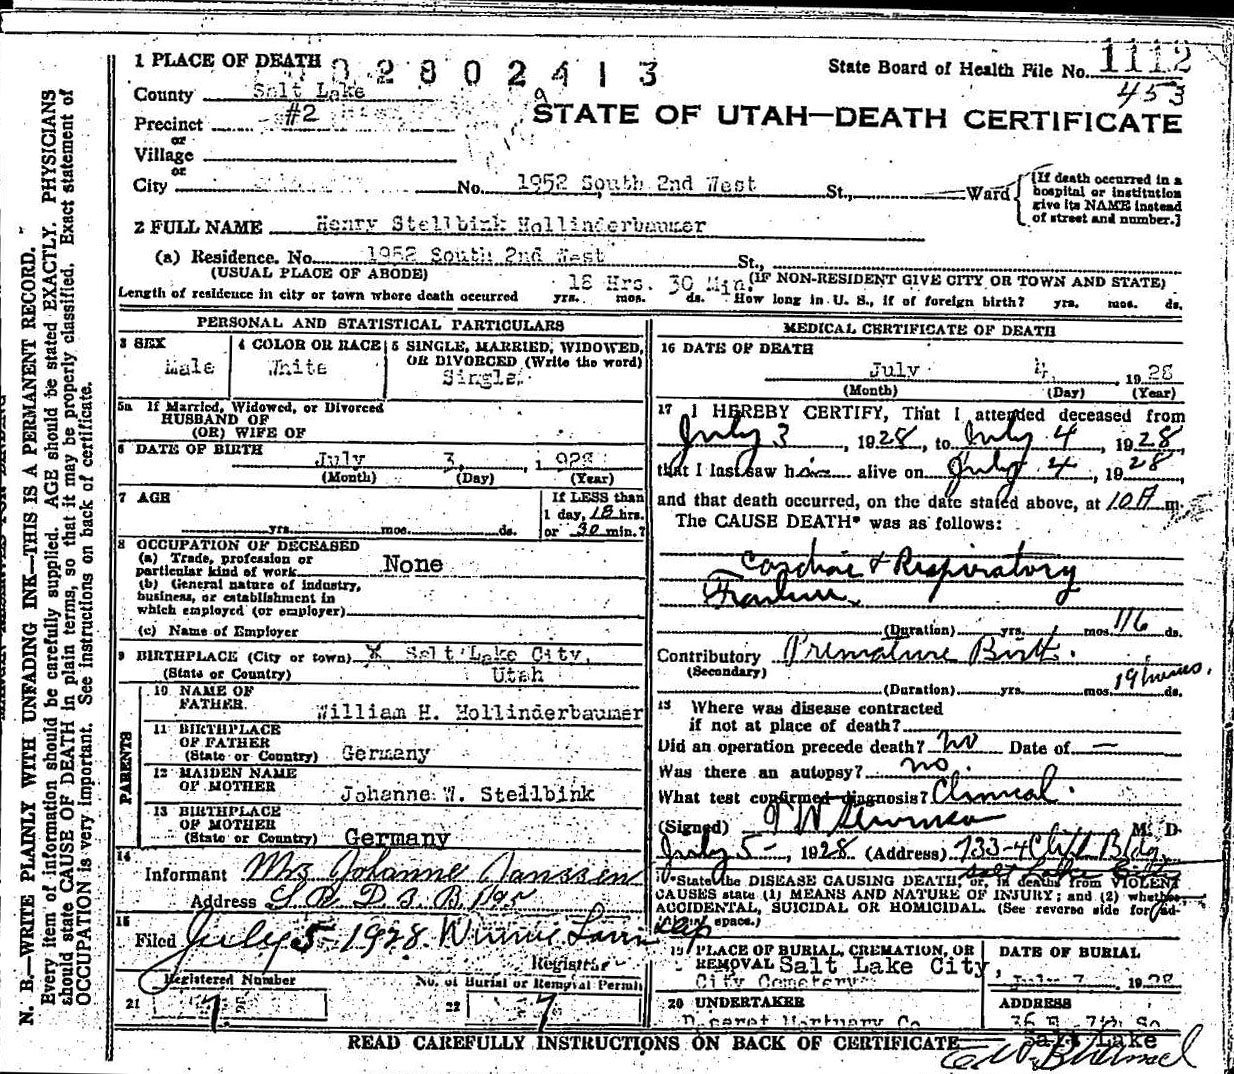 1 PLACE OF DEATH
02802413
State Board of Health File No. 1112
453
County Salt Lake
Precinct #2
STATE OF UTAH—DEATH CERTIFICATE
or
Village
or
City No. 1952 South 2nd West St., Ward
[If death occurred in a
hospital or institution
give its NAME instead
of street and number.]
2 FULL NAME Henry Stellbink Hollinderbaumer
(a) Residence. No. 1952 South 2nd West St.,
(USUAL PLACE OF ABODE) 18 Hrs. 30 Min. (IF NON-RESIDENT GIVE CITY OR TOWN AND STATE)
Length of residence in city or town where death occurred yrs. mos. ds. How long in U. S., if of foreign birth? yrs. mos. ds.
PERSONAL AND STATISTICAL PARTICULARS
3 SEX
Male
4 COLOR OR RACE
White
5 SINGLE, MARRIED, WIDOWED,
OR DIVORCED (Write the word)
Single
5a If Married, Widowed, or Divorced
HUSBAND OF
(OR) WIFE OF
6 DATE OF BIRTH
July 3, 1928
(Month) (Day) (Year)
7 AGE
yrs. mos. ds.
If LESS than
1 day, 18 hrs.
or 30 min.?
8 OCCUPATION OF DECEASED
(a) Trade, profession or
particular kind of work None
(b) General nature of industry,
business, or establishment in
which employed (or employer)
(c) Name of Employer
9 BIRTHPLACE (City or town) X Salt Lake City,
(State or Country) Utah
PARENTS
10 NAME OF
FATHER William H. Hollinderbaumer
11 BIRTHPLACE
OF FATHER
(State or Country) Germany
12 MAIDEN NAME
OF MOTHER Johanne W. Steilbink
13 BIRTHPLACE
OF MOTHER
(State or Country) Germany
14
Informant Mrs Johanne Janssen
Address
15
Filed July 5-1928.
Registrar
Registered Number
21
No. of Burial or Removal Permit
22
MEDICAL CERTIFICATE OF DEATH
16 DATE OF DEATH
July 4, 1928
(Month) (Day) (Year)
17 I HEREBY CERTIFY, That I attended deceased from
July 3, 1928, to July 4, 1928,
that I last saw him alive on July 4, 1928,
and that death occurred, on the date stated above, at 10 A m.
The CAUSE DEATH* was as follows:
Cardiac & Respiratory
(Duration) yrs. mos. ds.
Contributory Premature Birth.
(Secondary)
(Duration) yrs. mos. ds.
18 Where was disease contracted
if not at place of death?
Did an operation precede death? no Date of —
Was there an autopsy? no.
What test confirmed diagnosis? Clinical.
(Signed) M. D.
July 5-, 1928 (Address) 733-4 Clift Bldg
Salt Lake City
*State the DISEASE CAUSING DEATH, or, in deaths from VIOLENT
CAUSES state (1) MEANS AND NATURE OF INJURY; and (2) whether
ACCIDENTAL, SUICIDAL OR HOMICIDAL. (See reverse side for ad-
space.)
19 PLACE OF BURIAL, CREMATION, OR
REMOVAL Salt Lake City,
City Cemetery
DATE OF BURIAL
July 7, 1928
20 UNDERTAKER
Deseret Mortuary Co
ADDRESS
36 E. 7th So
Salt Lake
READ CAREFULLY INSTRUCTIONS ON BACK OF CERTIFICATE
N. B.—WRITE PLAINLY WITH UNFADING INK—THIS IS A PERMANENT RECORD.
Every item of information should be carefully supplied. AGE should be stated EXACTLY. PHYSICIANS
should state CAUSE OF DEATH in plain terms, so that it may be properly classified. Exact statement of
OCCUPATION is very important. See instructions on back of certificate.